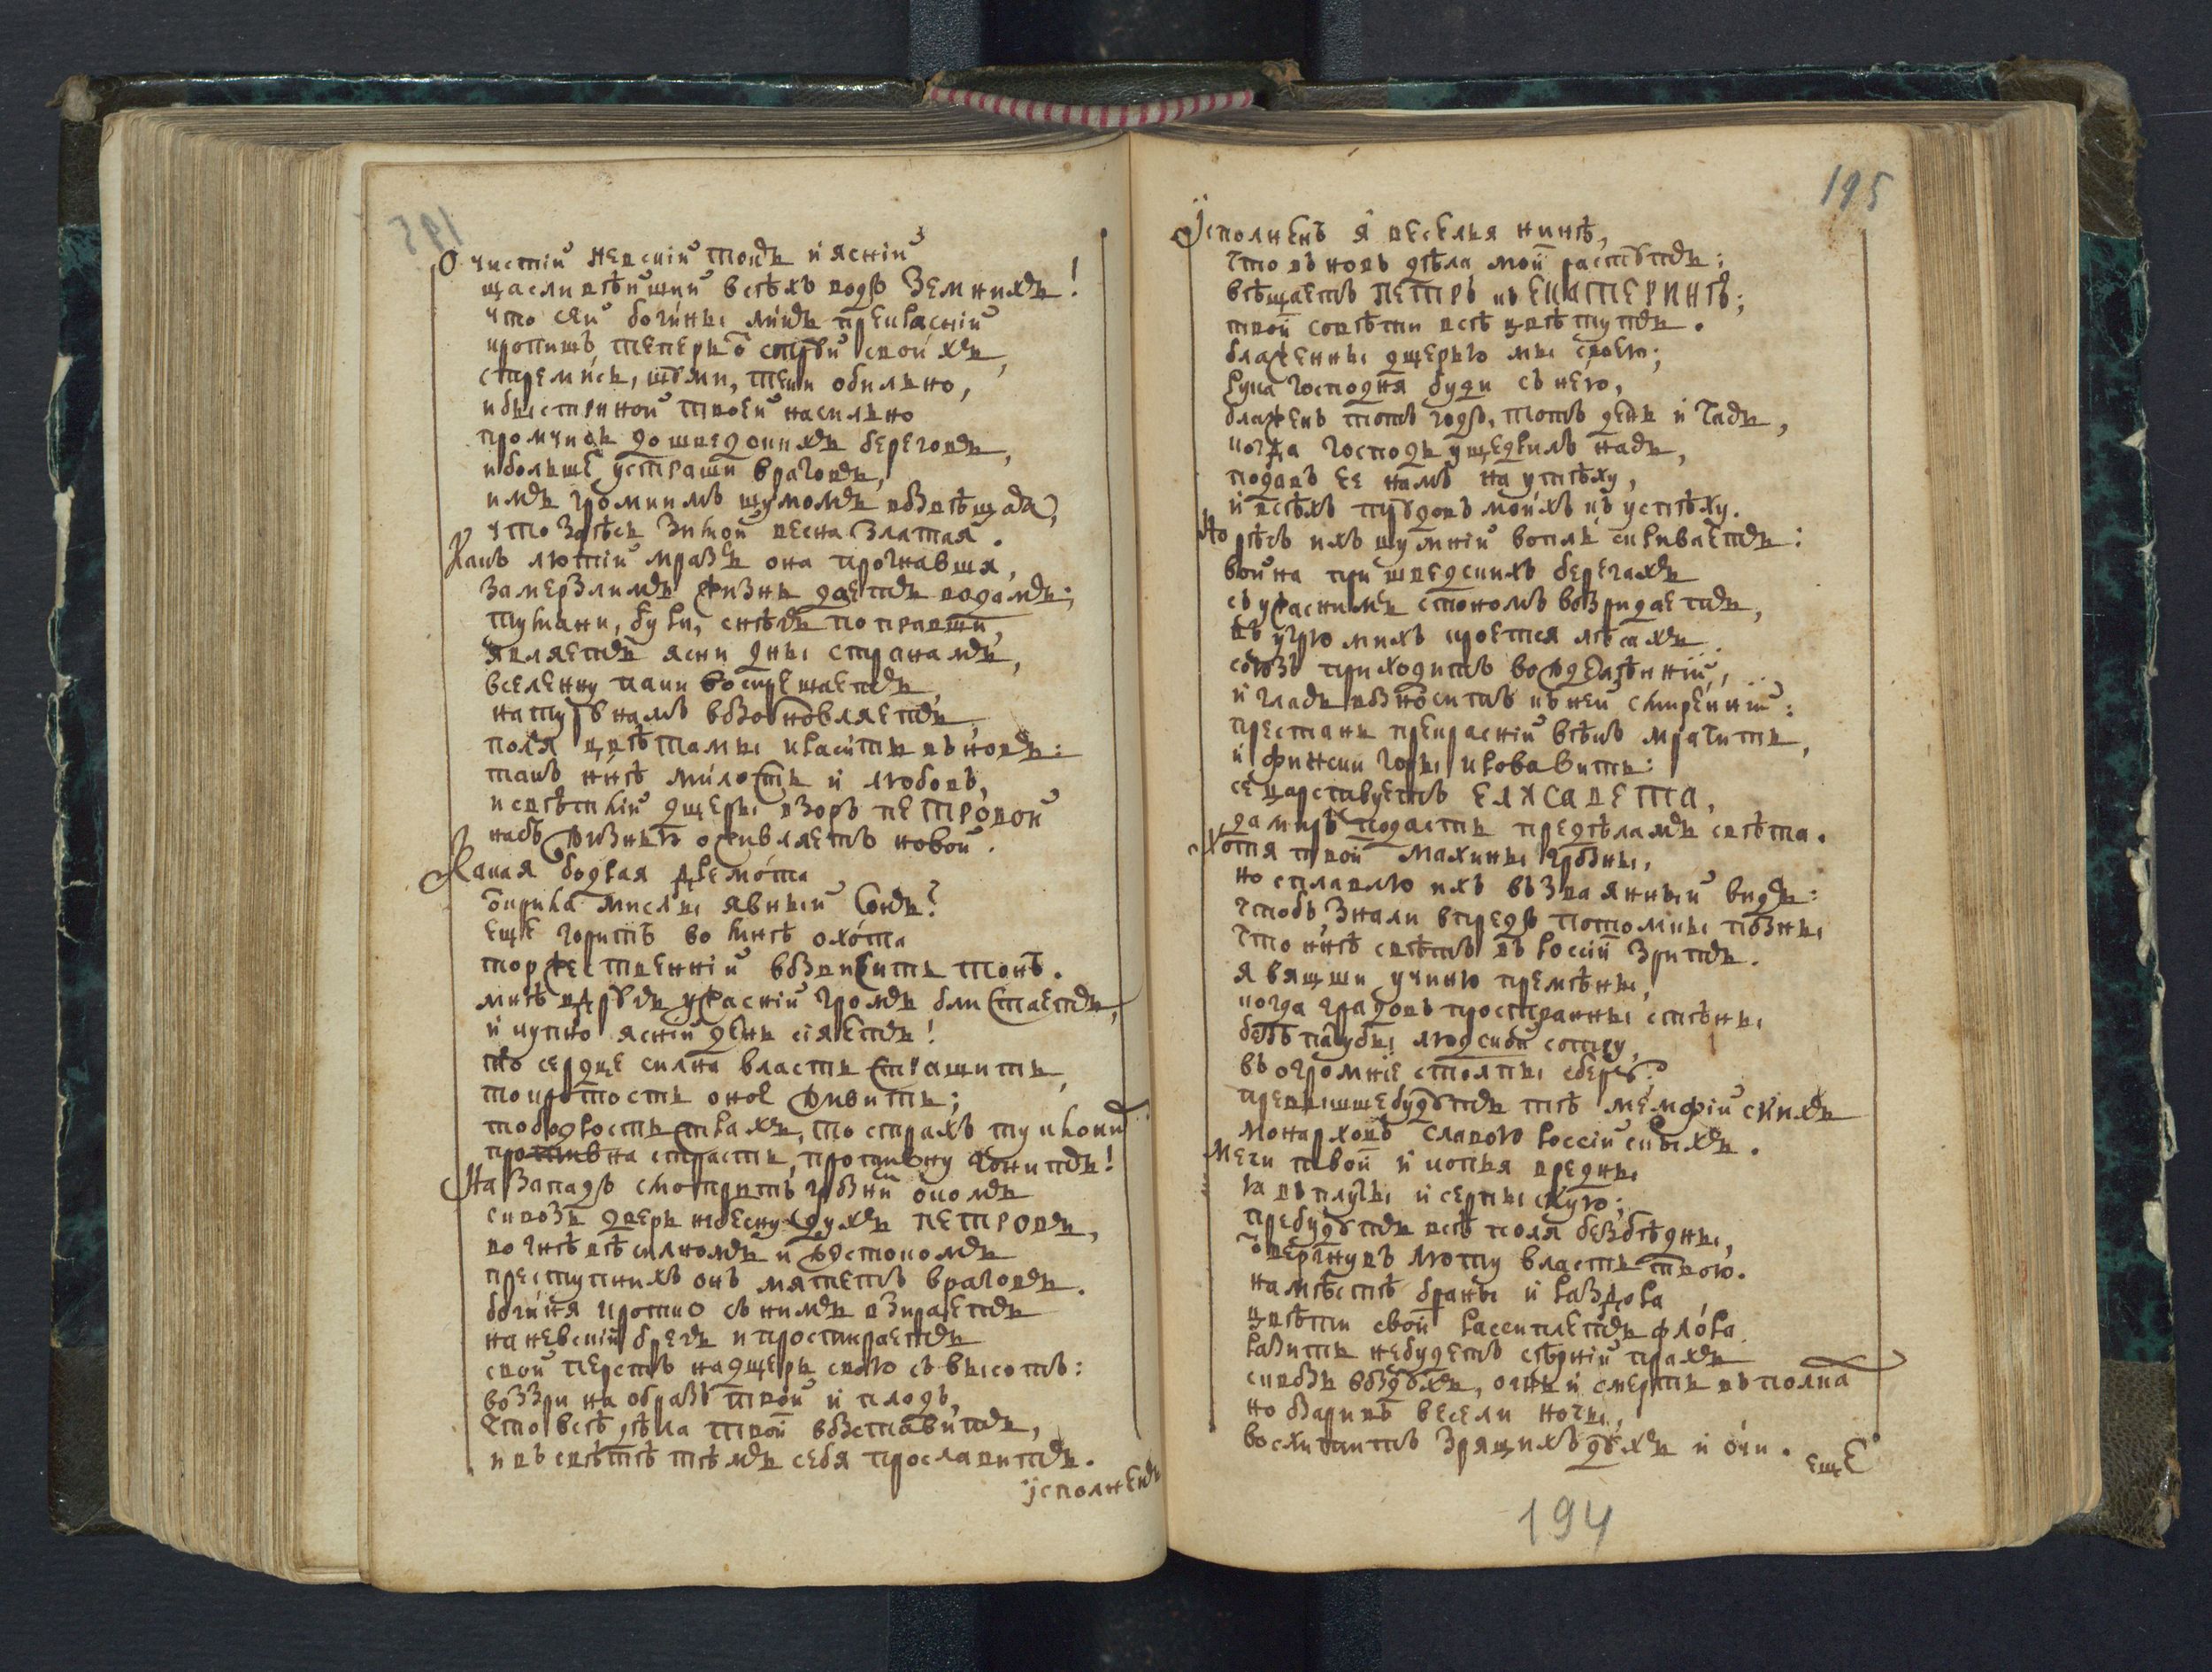 О чистїй невскїй токъ и яснїй
щасливѣйшій всѣхъ водъ земнихъ!
что сей богины ликъ прекраснїй
кропишъ теперь ѿ струй своихъ,
стремись, шуми, теки обильно,
и быстриной твоей насильно
промчись до шведскихъ береговъ,
и больше устраши враговъ,
имъ громкимъ шумомъ возвѣщая,
что здѣсь зимой весна златая.
Какъ лютїй мразъ она прогнавшя,
замерзлимъ жизнь даетъ водамъ;
тумани, бури, снѣгъ поправши,
являетъ ясни дны странамъ,
вселенну паки воскрешаетъ,
натуру намъ возобновляетъ,
поля цвѣтамы краситъ вновь:
такъ ннѣ милость и любовь,
и свѣтлїй дщеры взоръ ПЕТРОВОЙ
насъ жизнью оживляетъ новой.
Какая бодрая дремота
ѿкрила мислы явный сонъ?
еще горитъ во мнѣ охота
торжественнїй возвисить тонъ.
мнѣ вдругъ ужаснїй громъ блистаетъ,
и купно яснїй день сїяетъ!
то сердце силна власть страшитъ,
то кротость оное живитъ;
то бодрость страхъ, то страхъ ту клонит
противна страсть, противну гонитъ!
На западъ смотритъ грознымъ окомъ
сквозь дверь небесну духъ ПЕТРОВЪ,
во гнѣвѣ силномъ и жестокомъ
преступнихъ онъ мятетъ враговъ.
богиня кротко съ нимъ взираетъ
на невскїй брегъ и простираетъ
свой перстъ на дщерь свою съ высотъ:
воззри на образъ твой и плодъ,
что всѣ дѣла твои возставитъ,
и въ свѣтѣ тѣмъ себя прославитъ.
їсполненъ
195
Їсполненъ я веселья нинѣ,
что вновь дѣла мои растутъ:
вѣщаетъ ПЕТРЪ къ ЕКАТЕРИНѢ;
твои совѣти всѣ цвѣтутъ.
блаженны дщерью мы своею;
рука господня буди съ нею,
блаженъ тотъ годъ, тотъ день и часъ,
когда господь ущедрилъ насъ,
подавъ ее намъ на утѣху,
и всѣхъ трудовъ моихъ къ успѣху.
Но рѣчь ихъ шумнїй вопль скриваетъ:
война при шведскихъ берегахъ
съ ужаснимъ стономъ возридаетъ,
въ угрюмихъ кроется лѣсахъ.
союзъ приходитъ вожделѣннїй,
и гласъ возноситъ къ ней смиреннїй:
престань прекраснїй вѣкъ мрачить,
и фински горы кровавить:
се царствуетъ ЕЛИСАВЕТА,
да миръ подастъ предѣламъ свѣта.
Хотя твои махины грозны,
но сплавлю ихъ въ зваянный видъ:
чтобъ знали впредъ потомки позны
что ннѣ свѣтъ въ россїи зритъ.
я вящши учиню премѣны,
когда градовъ пространны стѣны
безъ пагубы людской сотру,
въ огромнїе столпы сберу:
превишше будутъ тѣ мемфїйскихъ
монарховъ славою россїйскихъ.
Мечи твои и копья вредны
я въ плуги и серпы скую;
пребудутъ всѣ поля безбѣдны,
ѿвергнувъ люту власть твою.
на мѣстѣ браны и раздора
цвѣти свои разсиплетъ флора,
разить не будетъ сѣрнїй прахъ
сквозь воздухъ, огнь и смерть въ полках
но озаривъ весели ночи,
восхититъ зрящихъ духъ и очи.
ещЕ
194